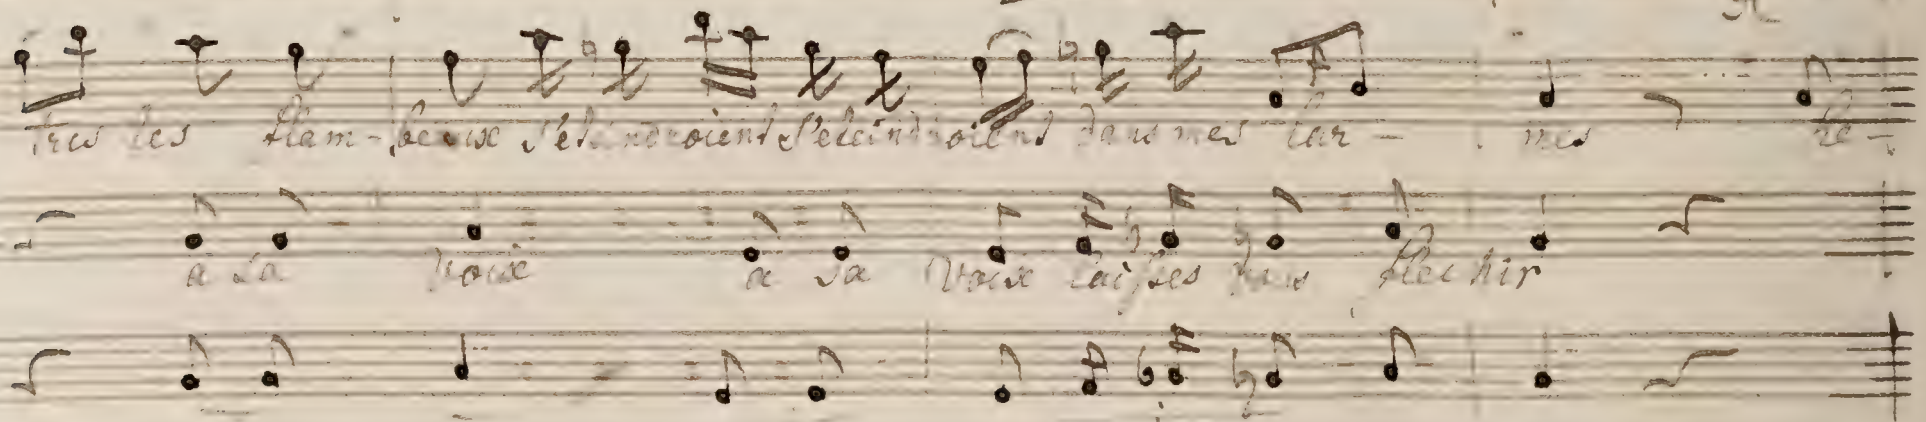 tres les flam-beaux s'eteindroient s'eteindroient dans mes lar- mes he-
a sa voix a sa voix laisses vous flechir